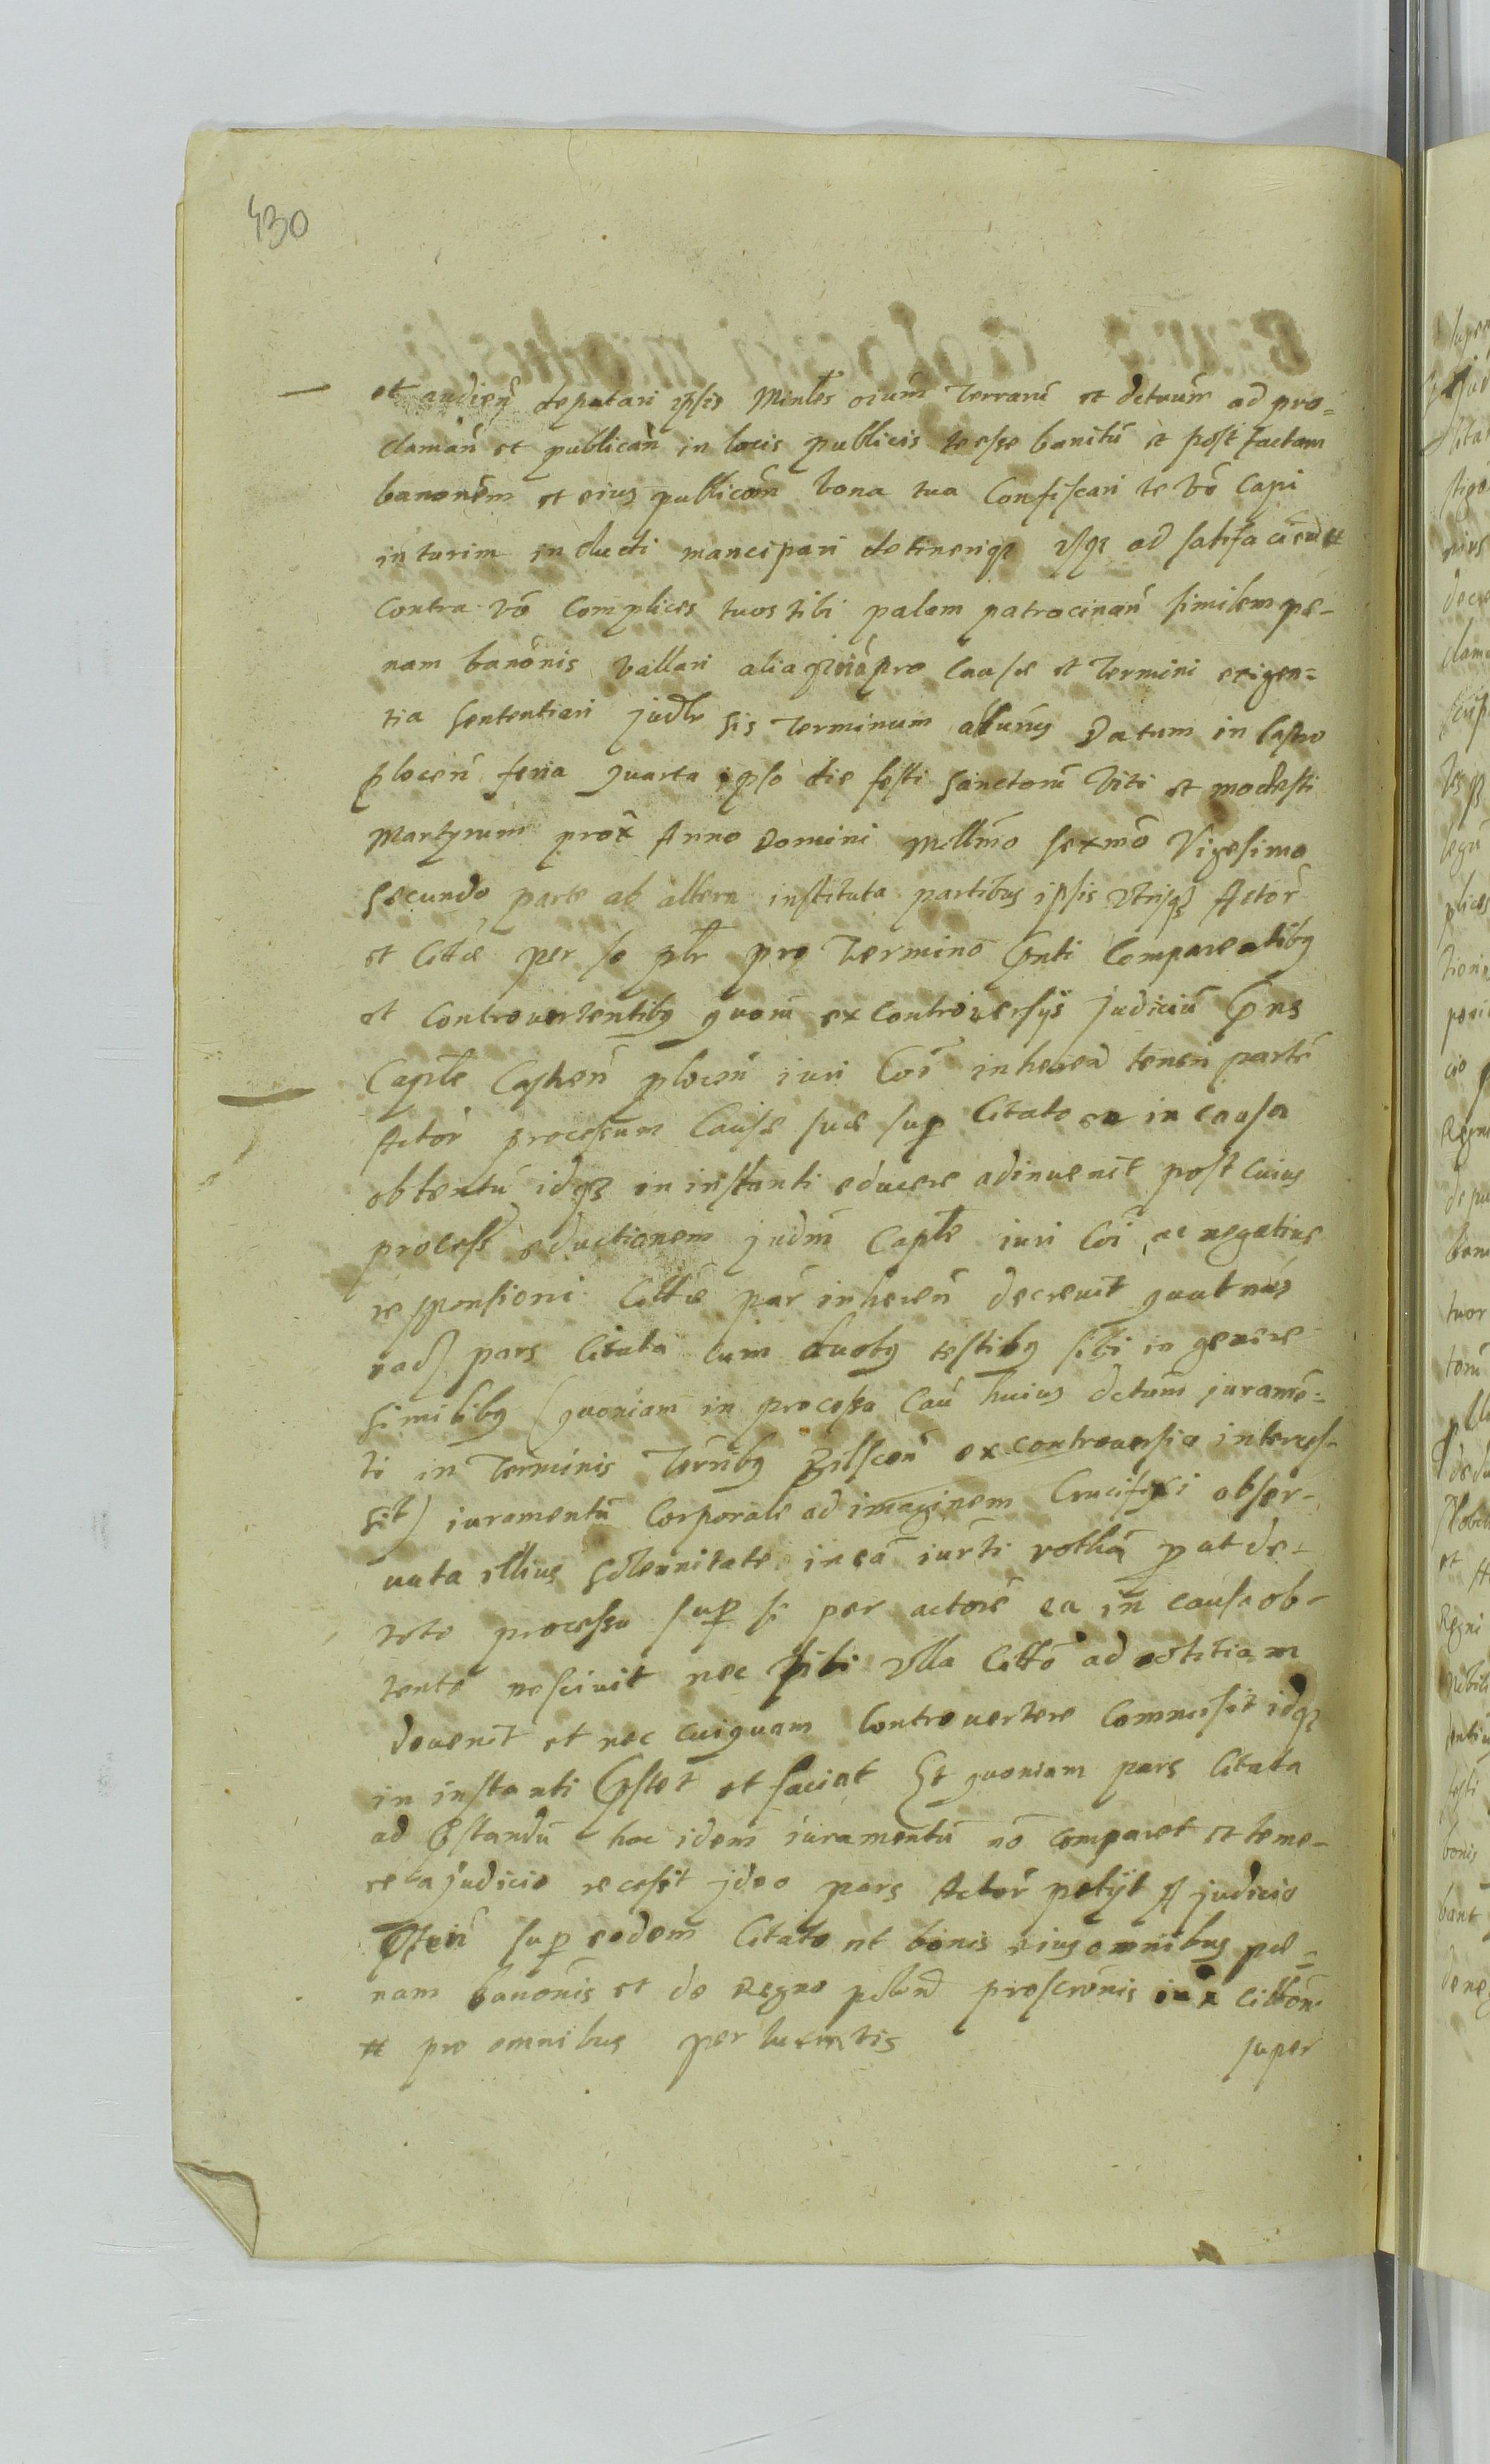 430
et audien deputari ipsis Minlēs oium Terrarū et dctuum ad pro=
claman̄ et publican̄ in locis publicis te esse banitū et post factam
banonēm et eius publicoēm bona tua Confiscari te vō Capi
in turim includi mancipari detineriqz usqz ad satisfaciend #
contra vō Complices tuos tibi palam patrocinan̄ similem pæ-
nam banōnis vallari alia pro Causæ et Termini exigen=
tia sententiari judlr sis Terminum Datum in Castro
plocen̄ feria quarta ipso die festi Sanctorū Viti et modesti
Martyrum prox Anno Domini Millmō sexmō Vigesimo
Secundo parte ab altera instituta partibus ipsis utrisqz Actor
et Citta per se plr pro Termino pnti Comparentibg
et controvertentibg quorū ex controversijs judiciū pns
Caple Castren̄ plocen̄ iuri Coi inheren̄ teneri partē
Actor processum Causæ suæ sup Citato ea in causa
obtentū idqz in instanti educere adinvenit post cuius
process eductionem judm Caple iuri Coi ac negative
responsioni Cittæ par inheren̄ decrevit quatnus
eadz pars Citata cum duobg testibg sibi in genere
similibg (quoniam in processu Cau huius dctum juramē=
ti in Terminis Terribg Bilscen̄ ex controversia interces-
sit) iuramentū Corporale ad imaginem Crucifixi obser-
vata illius Solennitate in eā iurti rothā put de-
toto processu sup se per actorē ea in causa ob-
tento nescivit nec sibi ulla Cittō ad notitiam
devenit et nec cuiquam Controvertere Commisit idqz
in instanti pstet et faciat Et quoniam pars Citata
ad pstandū hoc idem iuramentū nō comparet et teme-
re a judicio recessit jdeo pars Actor petijt A judicio
pnti sup eodem Citato et bonis eius omnibus pæ=
nam banōnis et de Regno polon proscrōnis iux Cittōn
# pro omnibus per lucratis super